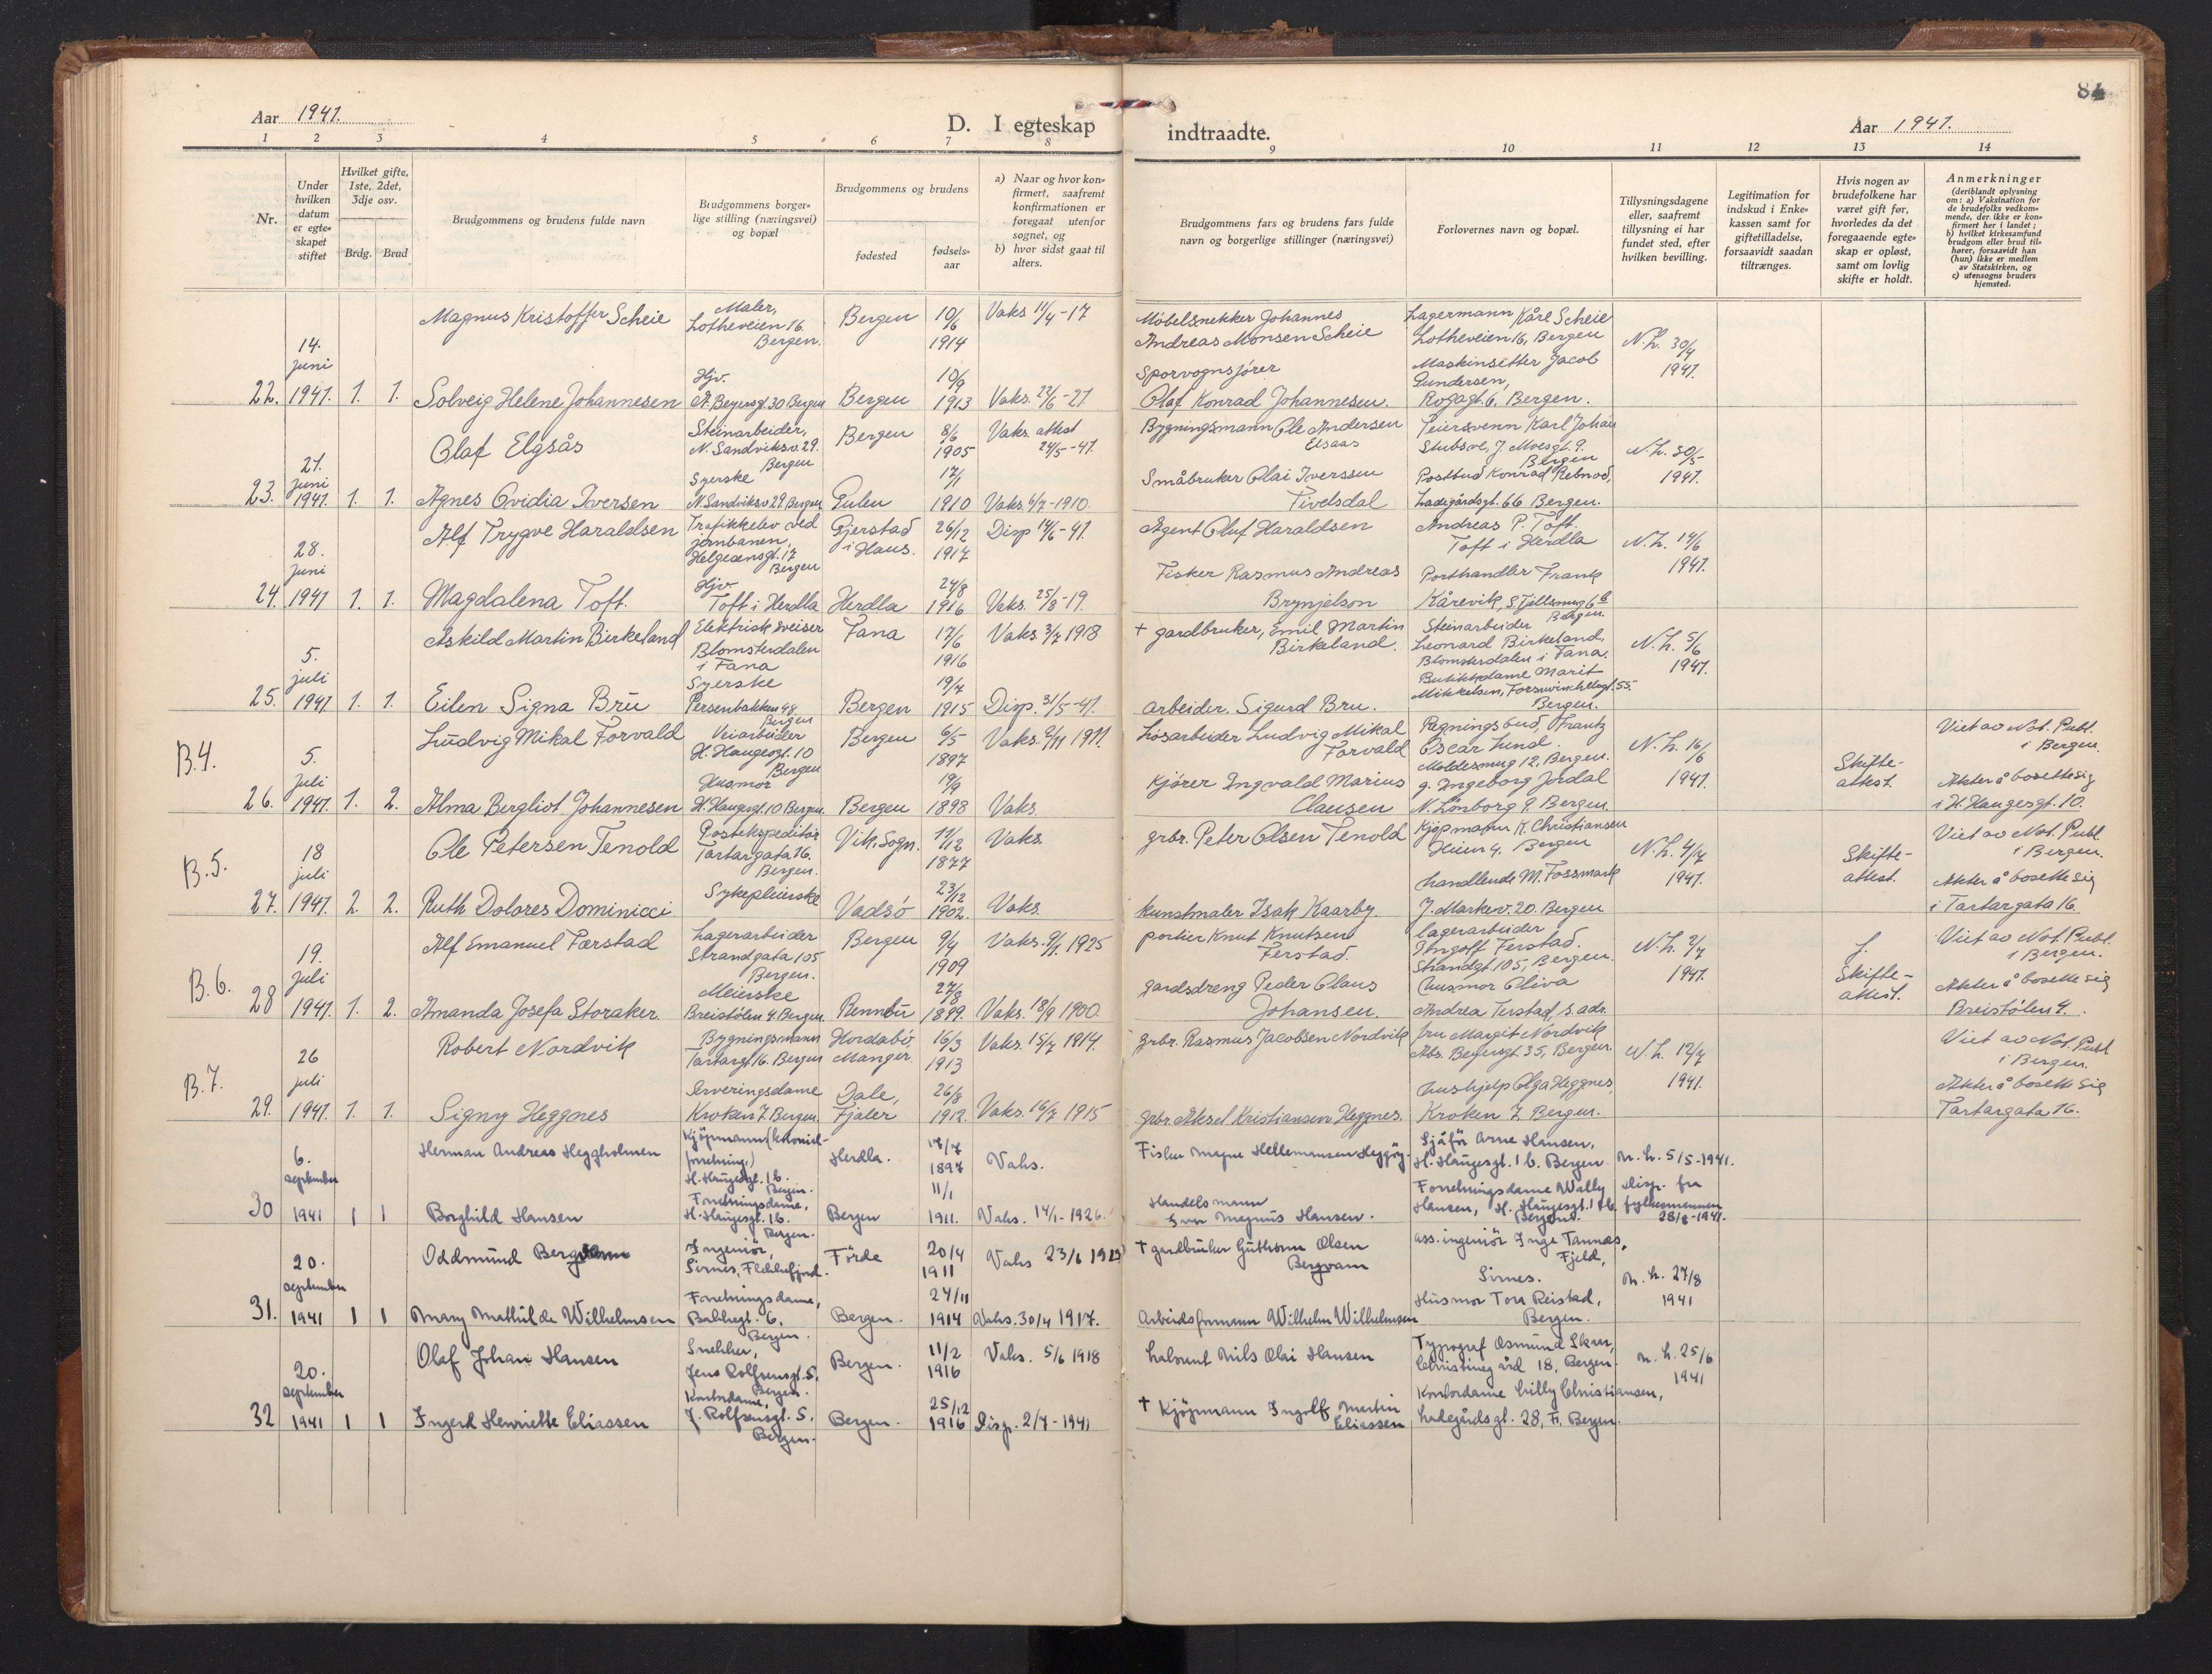 84
Aar 1941.
D. I egteskap
indtraadte.
Aar 1941.
1 2 3 4 5 6 7 8
9 10 11 12 13 14
Nr.
Under hvilken datum er egteskapet stiftet
Hvilket gifte, 1ste, 2det, 3dje osv.
Brdg. Brud
Brudgommens og brudens fulde navn
Brudgommens borgerlige stilling (næringsvei) og bopæl
Brudgommens og brudens
fødested
fødselsaar
a) Naar og hvor konfirmert, saafremt konfirmationen er foregaat utenfor sognet, og
b) hvor sidst gaat til alters.
Brudgommens fars og brudens fars fulde navn og borgerlige stillinger (næringsvei)
Forlovernes navn og bopæl.
Tillysningsdagene eller, saafremt tillysning ei har fundet sted, efter hvilken bevilling.
Legitimation for indskud i Enkekassen samt for giftetilladelse, forsaavidt saadan tiltrænges.
Hvis nogen av brudefolkene har været gift før, hvorledes da det foregaaende egteskap er opløst, samt om lovlig skifte er holdt.
Anmerkninger (deriblandt oplysning om: a) Vaksination for de brudefolks vedkommende, der ikke er konfirmert her i landet; b) hvilket kirkesamfund brudgom eller brud tilhører, forsaavidt han (hun) ikke er medlem av Statskirken, og c) utensogns bruders hjemsted.
22. 14. juni 1941. 1. 1.
Magnus Kristoffer Scheie
Maler, Lotheveien 16. Bergen.
Bergen
10/6 1914
Vaks 11/4-17
Møbelsnekker Johannes Andreas Monsen Scheie
Lagermann Kåre Scheie Lotheveien 16, Bergen
N.L. 30/4 1941.
Solveig Helene Johannesen
Hjv. A. Beyersgt. 30 Bergen
Bergen
10/9 1913
Vaks. 22/6-21
Sporvognsfører Olaf Konrad Johannesen.
Maskinsetter Jacob Gundersen, Rogagt. 6, Bergen.
23. 21. juni 1941. 1. 1.
Olaf Elgsås
Steinarbeider, N. Sandviksv. 29. Bergen
Bergen
8/6 1905
Vaks. attest 24/5-41.
Bygningsmann Ole Andersen Elsaas
Feiersvenn Karl Johan Stubsve, J. Moesgt. 9. Bergen
N.L. 30/5 1941.
Agnes Ovidia Iversen
Syerske N. Sandviksv 29. Bergen
Gulen
17/1 1910
Vaks. 6/7-1910.
Småbruker Olai Iverssen Tivelsdal
Postbud Konrad Rebnod, Ladegårdsgt. 66 Bergen.
24. 28. juni 1941 1. 1.
Alf Trygve Haraldsen
Trafikkelev ved jernbanen, Helgesensgt. 17 Bergen
Gjerstad i Haus.
26/12 1917
Disp 14/6-41.
Agent Oluf Haraldsen
Andreas P. Toft. Toft i Herdla
N.L. 14/6 1941.
Magdalena Toft.
Hjv. Toft i Herdla
Herdla
24/8 1916
Vaks. 25/8-19.
Fisker Rasmus Andreas Brynjelson
Porthandler Frank Kårevik, S. Fjellsmug 6 b Bergen.
25. 5. juli 1941 1. 1.
Askild Martin Birkeland
Elektrisk sveiser Blomsterdalen i Fana
Fana
17/6 1916
Vaks 3/7 1918
† gardbruker, Emil Martin Birkeland.
Steinarbeider Leonard Birkeland, Blomsterdalen i Fana.
N.L. 5/6 1941.
Eilen Signa Bru
Syerske Persenbakken 48. Bergen
Bergen
19/7 1915
Disp. 31/5-41.
arbeider. Sigurd Bru.
Butikkdame Marit Mikkelsen, Forswinckelsgt. 55. Bergen.
B.4.
26. 5. juli 1941. 1. 2.
Ludvig Mikal Forvald
Veiarbeider H. Haugesgt. 10 Bergen
Bergen
6/5 1897
Vaks. 9/11 1911.
Løsarbeider Ludvig Mikal Forvald
Regningsbud, Frantz Oscar Lund. Moldesmug 12, Bergen.
N.L. 16/6 1941.
Skifteattest.
Viet av Not. Publ. i Bergen.
Alma Bergliot Johannesen
Husmor H. Haugesgt. 10 Bergen.
Bergen
19/9 1898
Vaks.
Kjører Ingvald Marius Clausen
g. Ingeborg Jordal N. Lønborg 9. Bergen.
Akter å bosette sig i H. Haugesgt. 10.
B.5.
27. 18 juli 1941. 2. 2.
Ole Petersen Tenold
Postekspeditør Tartargata 16. Bergen.
Vik, Sogn.
11/12 1877
Vaks.
grbr. Peter Olsen Tenold
Kjøpmann K. Christiansen Heien 4. Bergen
N.L. 4/7 1941.
Skifteattest.
Viet av Not. Publ. i Bergen.
Ruth Dolores Dominicci
Sykepleierske
Vadsø
23/12 1902.
Vaks.
kunstmaler Isak Kaarby.
handlende M. Fossmark J. Markev. 20. Bergen
Akter å bosette sig i Tartargata 16.
B.6.
28 19. juli 1941. 1. 2.
Alf Emanuel Færstad
Lagerarbeider Strandgata 105 Bergen.
Bergen
9/4 1909
Vaks. 9/1 1925
portier Knut Knutsen Ferstad.
lagerarbeider Ingolf Ferstad. Strandgt. 105, Bergen.
N.L. 2/7 1941.
f. Skifteattest.
Viet av Not. Publ. i Bergen.
Amanda Josefa Storaker.
Meierske Breistølen 4. Bergen.
Rennbu
27/8 1899.
Vaks. 18/9 1900.
gardsdreng Peder Claus Johansen.
husmor Oliva Andrea Ferstad, s. adr.
Akter å bosette sig Breistølen 4.
B.7.
29. 26 juli 1941. 1. 1.
Robert Nordvik
Bygningsmann Tartargt. 16. Bergen
Hordabø Manger.
16/3 1913
Vaks. 15/7 1914.
grbr. Rasmus Jacobsen Nordvik
fru Margit Nordvik Abs. Beyersgt. 35, Bergen.
N.L. 12/7 1941.
Viet av Not. Publ i Bergen.
Signy Heggnes
Serveringsdame Kroken 7. Bergen.
Dale, Fjaler
26/8 1912.
Vaks. 16/7 1915
grbr Aksel Kristiansen Heggnes.
hushjelp Olga Heggnes, Kroken 7. Bergen.
Akter å bosette sig Tartargata 16.
30 6. september 1941 1 1
Herman Andreas Heggholmen
Kjøpmann (kolonialforretning,) H. Haugesgt. 1 b. Bergen.
Herdla.
14/7 1897
Vaks.
Fisker Magne Hellemansen Heggøy.
Sjåfør Arne Hansen, H. Haugesgt. 1 b. Bergen.
N.L. 5/5-1941. Disp. fra fylkesmannen 28/8-1941.
Borghild Hansen
Forretningsdame, H. Haugesgt. 1b. Bergen.
Bergen
11/1 1911.
Vaks. 14/1-1926.
Handelsmann Magnus Hansen.
Forretningsdame Willy Hansen, H. Haugesgt. 1 b. Bergen.
31. 20. september 1941 1 1
Oddmund Bergvam
Ingeniør, Sirnes, Flekkefjord.
Førde
20/4 1911
Vaks 23/6 1913
† gardbruker Guthorm Olsen Bergvam
ass. ingeniør Inge Tannas, Fjeld, Sirnes.
N.L. 27/8 1941
Mary Mathilde Wilhelmsen
Forretningsdame, Bakkegt. 6. Bergen.
Bergen.
24/11 1914
Vaks. 30/4 1917.
Arbeidsformann Wilhelm Wilhelmsen
Husmor Tora Reistad, Bergen.
32 20. september 1941 1 1
Olaf Johan Hansen
Snekker, Jens Rolfsensgt. 5. Bergen.
Bergen.
11/2 1916
Vaks. 5/6 1918
Nils Olai Hansen
Typograf Osmund Skar, Christinegård 18, Bergen.
N.L. 25/6 1941
Ingerd Henriette Eliassen
Kontordame, J. Rolfsensgt. 5. Bergen.
Bergen.
25/12 1916
Disp. 2/7-1941
† Kjøpmann Ingolf Martin Eliassen
Kontordame Lilly Christiansen, Ladegårdsgt. 28, Bergen.